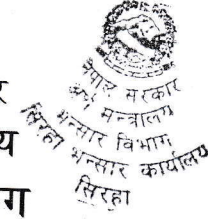 नेपाल सरकार
अर्थ मन्त्रालय
भन्सार विभाग
सिरहा भन्सार कार्यालय
सिरहा
र
य
ग